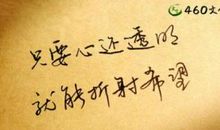 460文
只要心还透明
就能折射希望